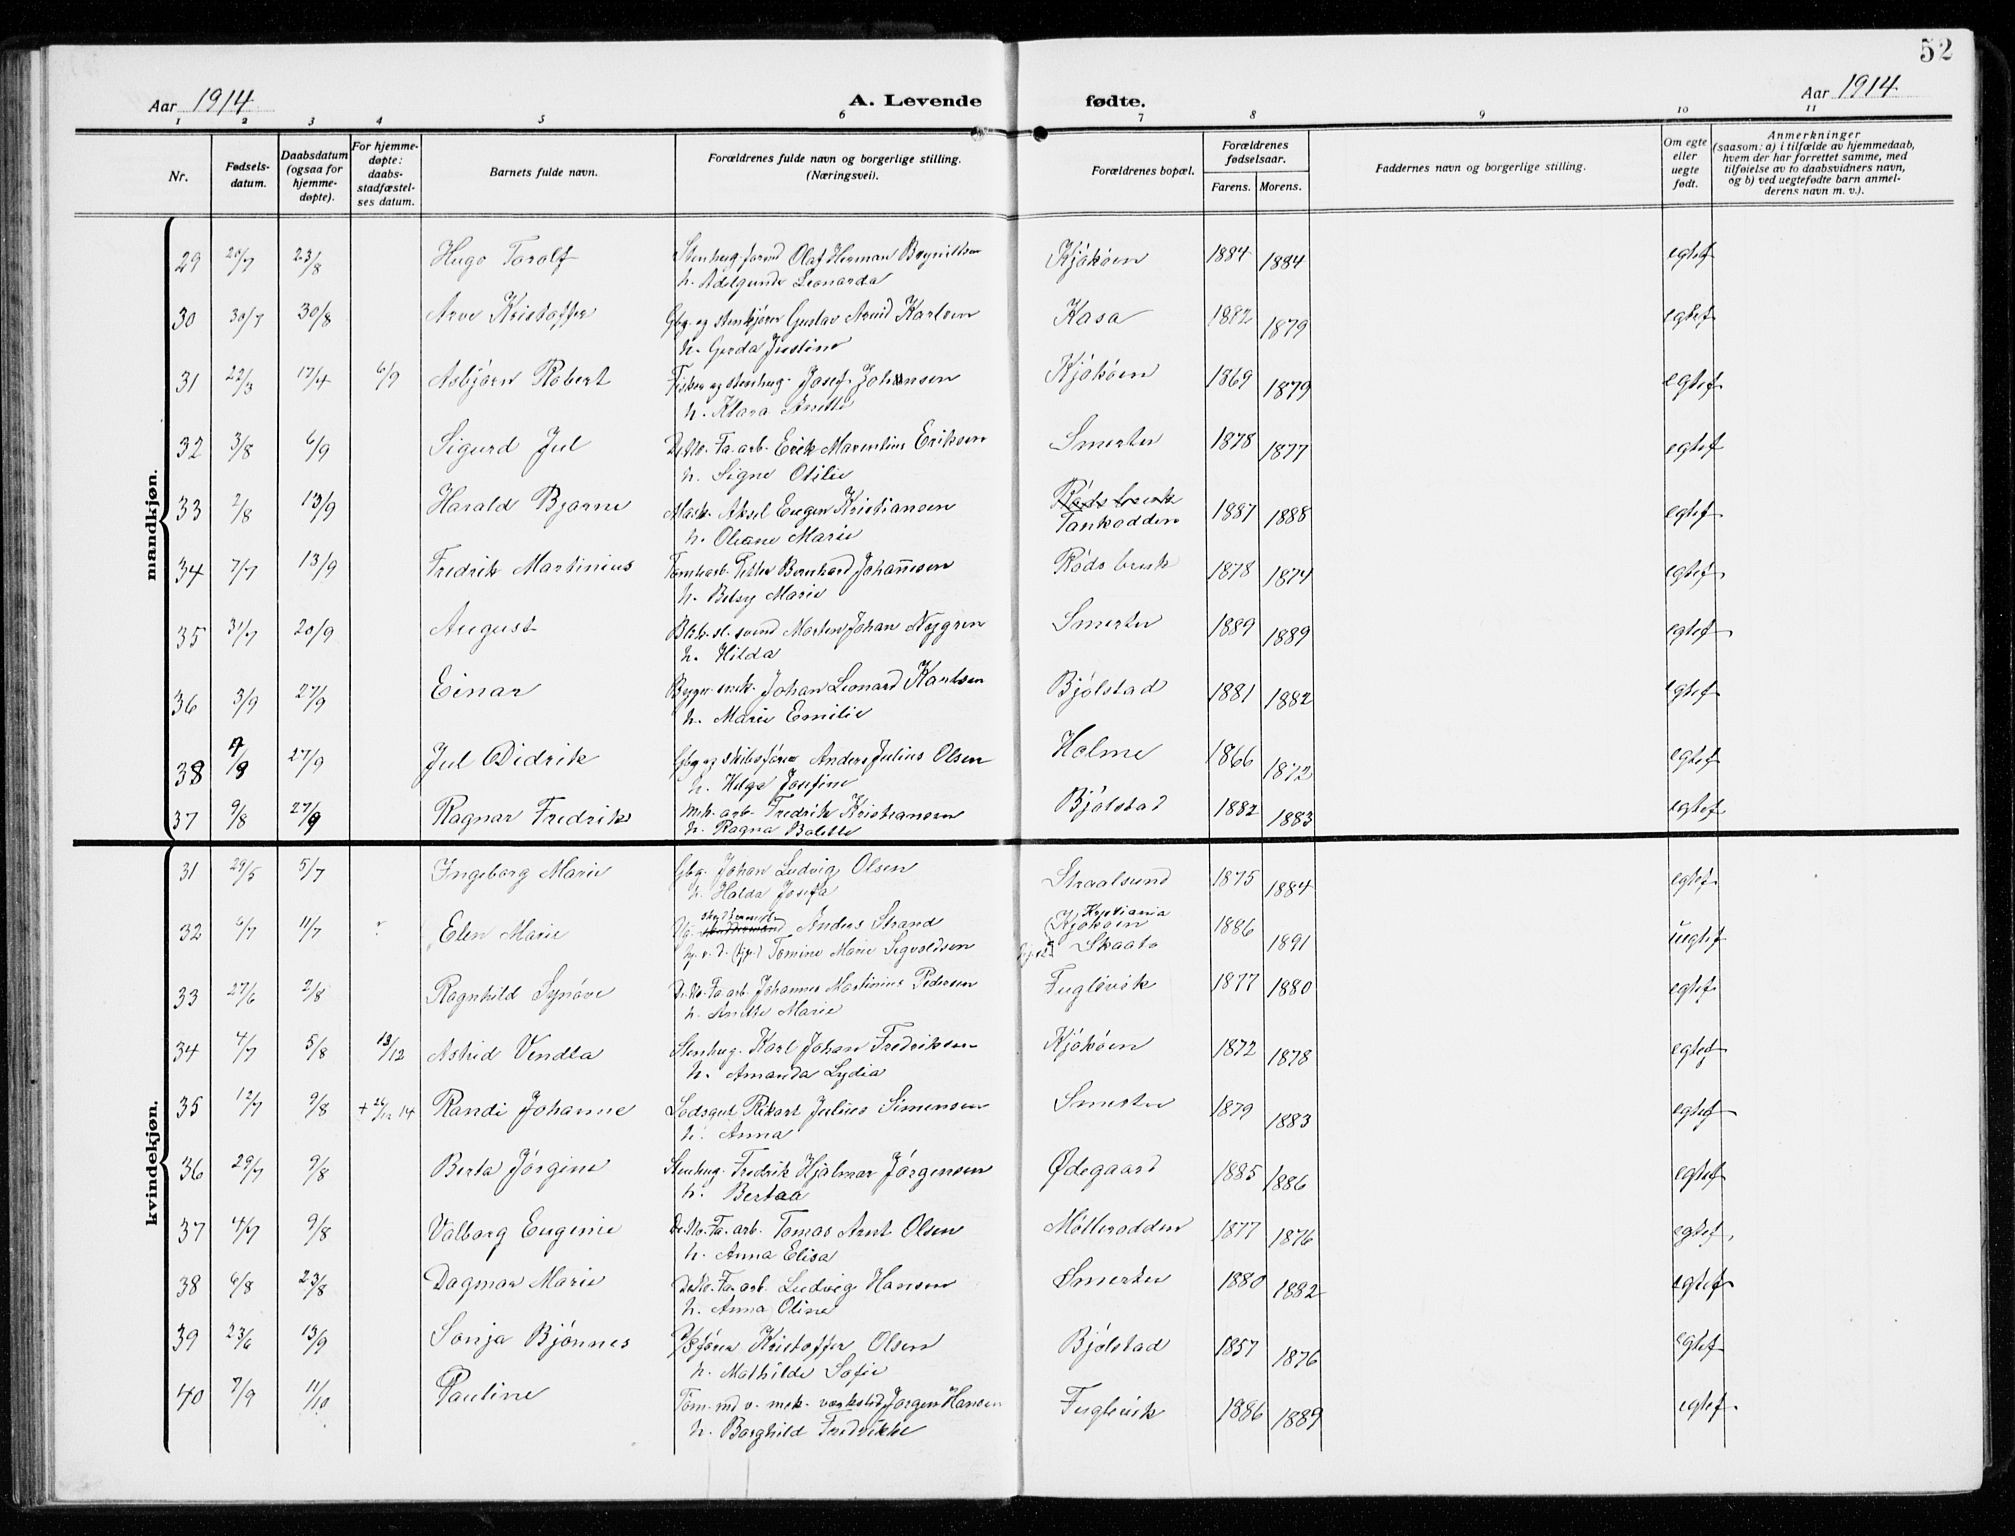 52
Aar 1914 A. Levende fødte. Aar 1914
1 2 3 4 5 6 7 8 9 10 11
Nr.
Fødsels-
datum.
Daabsdatum
(ogsaa for
hjemme-
døpte).
For hjemme-
døpte:
daabs-
stadfæstel-
ses datum.
Barnets fulde navn.
Forældrenes fulde navn og borgerlige stilling.
(Næringsvei).
Forældrenes bopæl.
Forældrenes
fødselsaar.
Farens. Morens.
Faddernes navn og borgerlige stilling.
Om egte
eller
uegte
født.
Anmerkninger
(saasom: a) i tilfælde av hjemmedaab,
hvem der har forrettet samme, med
tilføielse av to daabsvidners navn,
og b) ved uegtefødte barn anmel-
derens navn m. v.).
mandkjøn.
29 20/7 23/8 Hugo Torolf Stenhug. formd Olaf Herman Brynildsen Kjøkøen 1884 1884 egtef
h. Adelgunde Leonarda
30 30/7 30/8 Arve Kristoffer Gbg. og stenkjører Gustav Arvid Karlsen Kasa 1882 1879 egtef
h. Gerda Justine
31 22/3 17/4 6/9 Asbjørn Robert Fisker og stenhug. Josef Johansen Kjøkøen 1869 1879 egtef
h. Klara Anette
32 3/8 6/9 Sigurd Jul De No. Fa. arb. Erik Marentius Eriksen Smertu 1878 1877 egtef
h. Signe Otilie
33 2/8 13/9 Harald Bjarne Mask. Aksel Eugen Kristiansen Røds bruk 1887 1888 egtef
h. Oleane Marie Tankodden
34 7/7 13/9 Fredrik Martinius Tomtearb. Petter Bernhard Johannesen Røds bruk 1878 1874 egtef.
h. Betsy Marie
35 31/7 20/9 August Blik. sl. svend Morten Johan Nygren Smertu 1889 1889 egtef.
h. Hilda
36 3/9 27/9 Einar Bygn. snek. Johan Leonard Karlsen Bjølstad 1881 1882 egtef
h. Marie Emilie
38 4/9 27/9 Jul Didrik Gbg og skibsfører Anders Julius Olsen Holme 1866 1872 egtef
h. Helga Josefine
37 9/8 27/9 Ragnar Fredrik Mek. arb. Fredrik Kristiansen Bjølstad 1882 1883 egtef
h. Ragna Bolette
kvindekjøn.
31 29/5 5/7 Ingeborg Marie Gbg. Johan Ludvig Olsen Straalsund 1875 1884 egtef
h. Halda Josefa
32 6/7 11/7 Elen Marie Anders Strand Kristiania Kjøkøen 1886 1891 uegtef
Tomine Marie Sigvoldsen Skaato
33 27/6 2/8 Ragnhild Synøve De No. Fa arb. Johannes Martinius Pedersen Fuglevik 1877 1880 egtef
h. Anette Marie
34 4/7 5/8 13/12 Astrid Vendla Stenhug. Karl Johan Fredriksen Kjøkøen 1872 1878 egtef
h. Amanda Lydia
35 12/7 9/8 + 26/12 14 Randi Johanne Lodsgut Rikart Julius Simensen Smertu 1879 1883 egtef
h. Anna
36 29/7 9/8 Berta Jørgine Stenhug. Fredrik Hjalmar Jørgensen Ødegaard 1885 1886 egtef
h. Bertaa
37 4/7 9/8 Valborg Eugenie De. No. Fa. arb. Tomas Arnt Olsen Møllerodden 1877 1876 egtef.
h. Anna Elisa
38 6/8 23/8 Dagmar Marie De No. Fa. arb. Ludvig Hansen Smertu 1880 1882 egtef
h. Anna Oline
39 23/6 13/9 Sonja Bjønnes D/S fører Kristoffer Olsen Bjølstad 1857 1876 egtef
h. Mathilde Sofie
40 7/9 11/10 Pauline Tom. md v. mek. værksted Jørgen Hansen Fuglevik 1886 1889 egtef.
h. Borghild Fredrikke